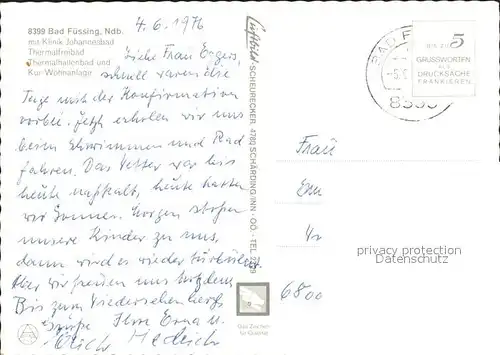 8399 Bad Füssing, Ndb.
mit Klinik Johannesbad
Thermalfreibad
Thermalhallenbad und
Kur-Wohnanlage
4. 6. 1976
Liebe Frau Engers,
schnell waren die
Tage mit der Konfirmation
vorbei. Jetzt erholen wir uns
beim Schwimmen und Rad
fahren. Das Wetter war bis
heute naßkalt, heute hatten
wir Sonne. Morgen stoßen
unsere Kinder zu uns,
dann wird es wieder turbulent.
Aber wir freuen uns trotzdem.
Bis zum Wiedersehen herzl.
Grüße Ihre Erna u.
Erich
Luftbild SCHEURECKER, 4780 SCHÄRDING INN - OÖ. - TEL.
BAD F
8399
BIS ZU 5
GRUSSWORTEN
ALS
DRUCKSACHE
FRANKIEREN
Frau
6800
Das Zeichen
für Qualität
privacy protection
Datenschutz